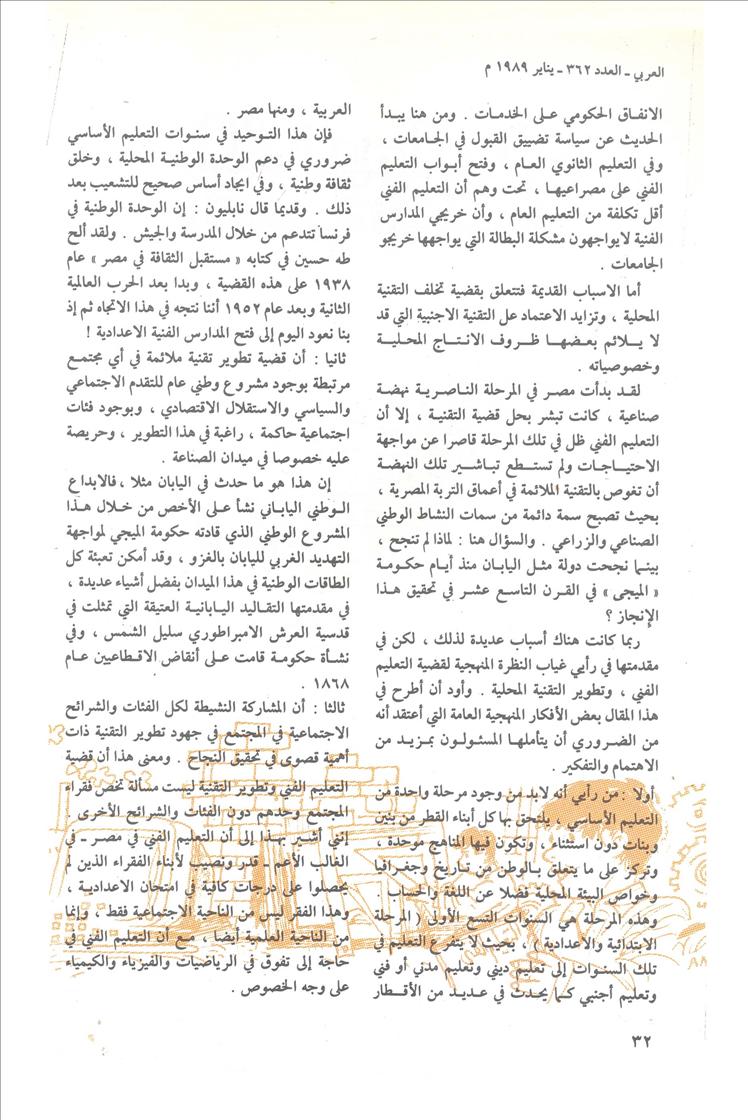 العربي - العدد ٣٦٢ - يناير ١٩٨٩ م
الانفاق الحكومي على الخدمات . ومن هنا يبدأ
الحديث عن سياسة تضييق القبول في الجامعات ،
وفي التعليم الثانوي العام ، وفتح أبواب التعليم
الفني على مصراعيها ، تحت وهم أن التعليم الفني
أقل تكلفة من التعليم العام ، وأن خريجي المدارس
الفنية لايواجهون مشكلة البطالة التي يواجهها خريجو
الجامعات .
أما الاسباب القديمة فتتعلق بقضية تخلف التقنية
المحلية ، وتزايد الاعتماد عل التقنية الاجنبية التي قد
لا يلائم بعضها ظروف الانتاج المحلية
وخصوصياته .
لقد بدأت مصر في المرحلة الناصرية نهضة
صناعية ، كانت تبشر بحل قضية التقنية ، إلا أن
التعليم الفني ظل في تلك المرحلة قاصرا عن مواجهة
الاحتياجات ولم تستطع تباشير تلك النهضة
أن تغوص بالتقنية الملائمة في أعماق التربة المصرية ،
بحيث تصبح سمة دائمة من سمات النشاط الوطني
الصناعي والزراعي . والسؤال هنا : لماذا لم تنجح ،
بينما نجحت دولة مثل اليابان منذ أيام حكومة
« الميجى » في القرن التاسع عشر في تحقيق هذا
الإنجاز ؟
ربما كانت هناك أسباب عديدة لذلك ، لكن في
مقدمتها في رأيي غياب النظرة المنهجية لقضية التعليم
الفني ، وتطوير التقنية المحلية . وأود أن أطرح في
هذا المقال بعض الأفكار المنهجية العامة التي أعتقد أنه
من الضروري أن يتأملها المسئولون بمزيد من
الاهتمام والتفكير .
أولا : من رأيي أنه لابد من وجود مرحلة واحدة من
التعليم الأساسي ، يلتحق بها كل أبناء القطر من بنين
وبنات دون استثناء ، وتكون فيها المناهج موحدة ،
وتركز على ما يتعلق بالوطن من تاريخ وجغرافيا
وخواص البيئة المحلية فضلا عن اللغة والحساب .
وهذه المرحلة هي السنوات التسع الأولى ( المرحلة
الابتدائية والاعدادية ) ، بحيث لا يتفرع التعليم في
تلك السنوات إلى تعليم ديني وتعليم مدني أو فني
وتعليم أجنبي كما يحدث في عديد من الأقطار
العربية ، ومنها مصر .
فإن هذا التوحيد في سنوات التعليم الأساسي
ضروري في دعم الوحدة الوطنية المحلية ، وخلق
ثقافة وطنية ، وفي ايجاد أساس صحيح للتشعيب بعد
ذلك . وقديما قال نابليون : إن الوحدة الوطنية في
فرنسا تتدعم من خلال المدرسة والجيش . ولقد ألح
طه حسين في كتابه « مستقبل الثقافة في مصر » عام
١٩٣٨ على هذه القضية ، وبدا بعد الحرب العالمية
الثانية وبعد عام ١٩٥٢ أننا نتجه في هذا الاتجاه ثم إذ
بنا نعود اليوم إلى فتح المدارس الفنية الاعدادية !
ثانيا : أن قضية تطوير تقنية ملائمة في أي مجتمع
مرتبطة بوجود مشروع وطني عام للتقدم الاجتماعي
والسياسي والاستقلال الاقتصادي ، وبوجود فئات
اجتماعية حاكمة ، راغبة في هذا التطوير ، وحريصة
عليه خصوصا في ميدان الصناعة .
إن هذا هو ما حدث في اليابان مثلا ، فالابداع
الوطني الياباني نشأ على الأخص من خلال هذا
المشروع الوطني الذي قادته حكومة الميجي لمواجهة
التهديد الغربي لليابان بالغزو ، وقد أمكن تعبئة كل
الطاقات الوطنية في هذا الميدان بفضل أشياء عديدة ،
في مقدمتها التقاليد اليابانية العتيقة التي تمثلت في
قدسية العرش الامبراطوري سليل الشمس ، وفي
نشأة حكومة قامت على أنقاض الاقطاعيين عام
١٨٦٨ .
ثالثا : أن المشاركة النشيطة لكل الفئات والشرائح
الاجتماعية في المجتمع في جهود تطوير التقنية ذات
أهمية قصوى في تحقيق النجاح . ومعنى هذا أن قضية
التعليم الفني وتطوير التقنية ليست مسألة تخص فقراء
المجتمع وحدهم دون الفئات والشرائح الأخرى .
إنني أشير بهذا إلى أن التعليم الفني في مصر - في
الغالب الأعم - قدر ونصيب لأبناء الفقراء الذين لم
يحصلوا على درجات كافية في امتحان الاعدادية ،
وهذا الفقر ليس من الناحية الاجتماعية فقط ، وإنما
من الناحية العلمية أيضا ، مع أن التعليم الفني في
حاجة إلى تفوق في الرياضيات والفيزياء والكيمياء
على وجه الخصوص .
٣٢